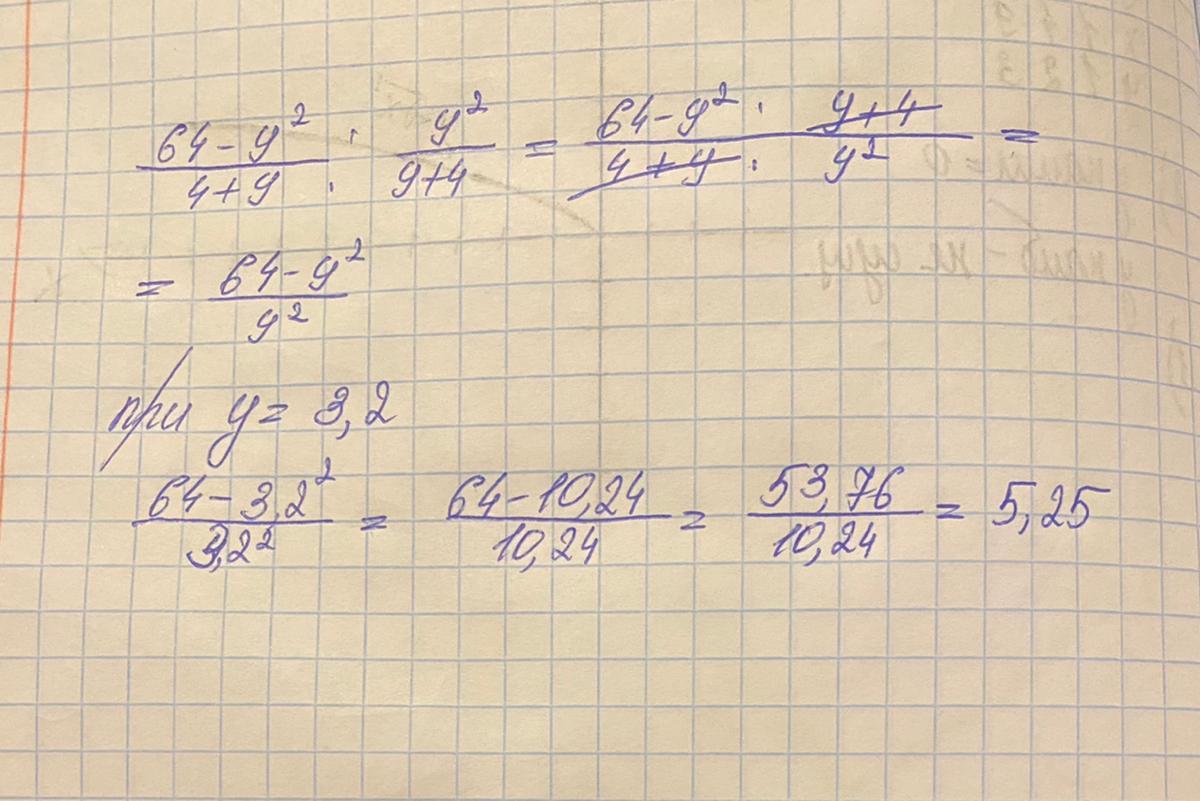 (64-y²)/(4+y) : y²/(y+4) = (64-y² · y+4)/(4+y · y²) =
= (64-y²)/y²
при y = 3,2
(64-3,2²)/3,2² = (64-10,24)/10,24 = 53,76/10,24 = 5,25